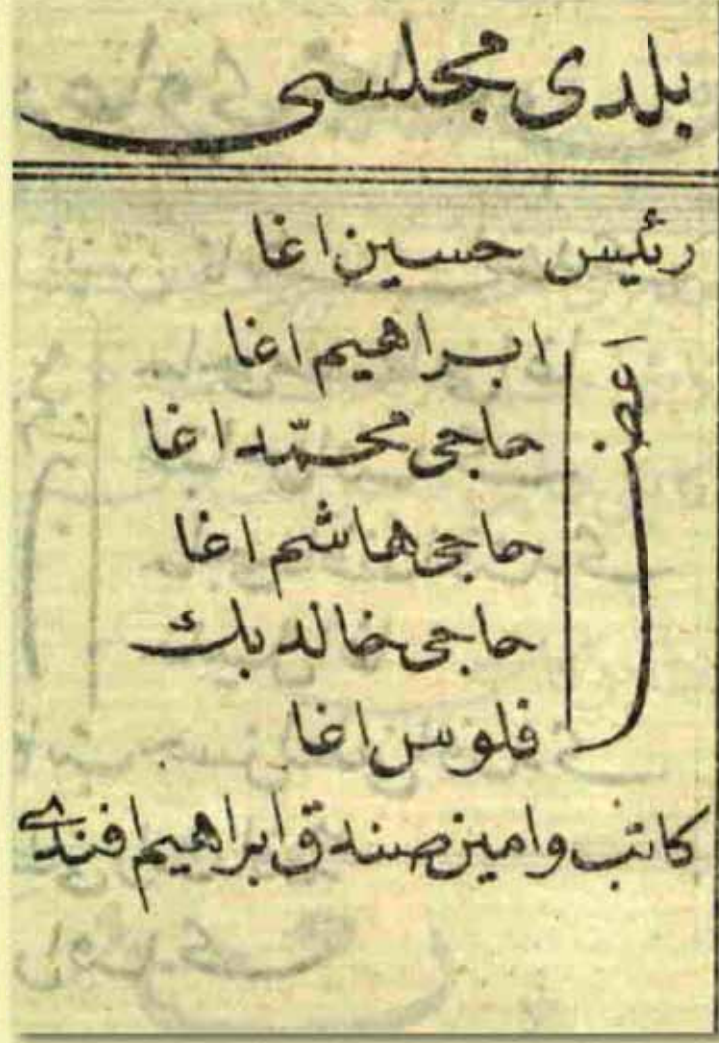 بلدی مجلسی
رئیس حسین اغا
اعضا
ابراهیم اغا
حاجی محمّد اغا
حاجی هاشم اغا
حاجی خالد بك
قلوس اغا
کاتب وامین صندق ابراهیم افندی